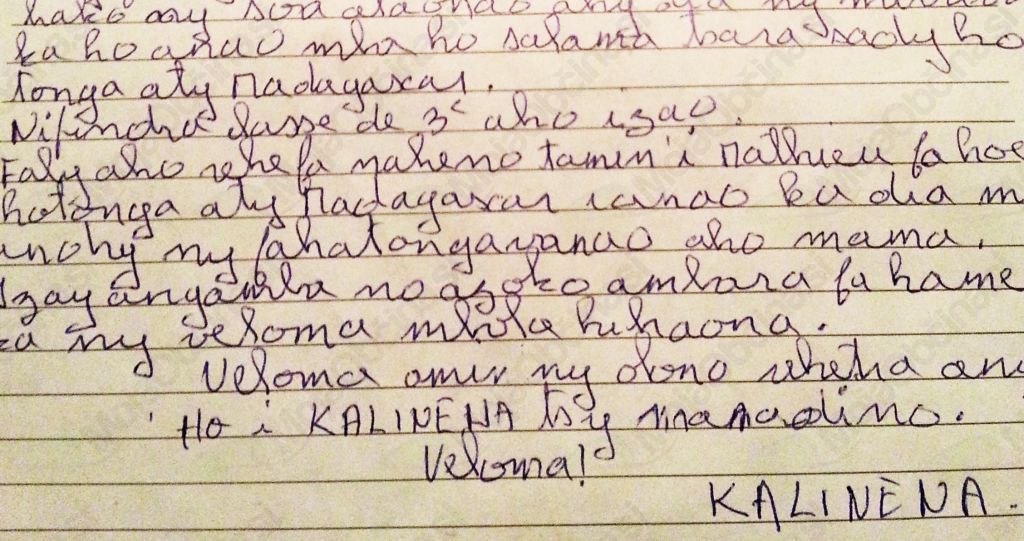 ka ho anao mba ho salama tsara sady ho
tonga aty Madagascar.
Nifindra classe de 3è aho izao.
Faly aho rehefa naheno tamin'i Mathieu fa hoe
hotonga aty Madagascar ianao ka dia m
anohy ny fahatongavanao aho mama.
Izay angamba no azoko ambara fa hame
ny veloma mbola hihaona.
Veloma amin ny olona rehetra any
Ho i KALINENA tsy manadino.
Veloma!
KALINENA.